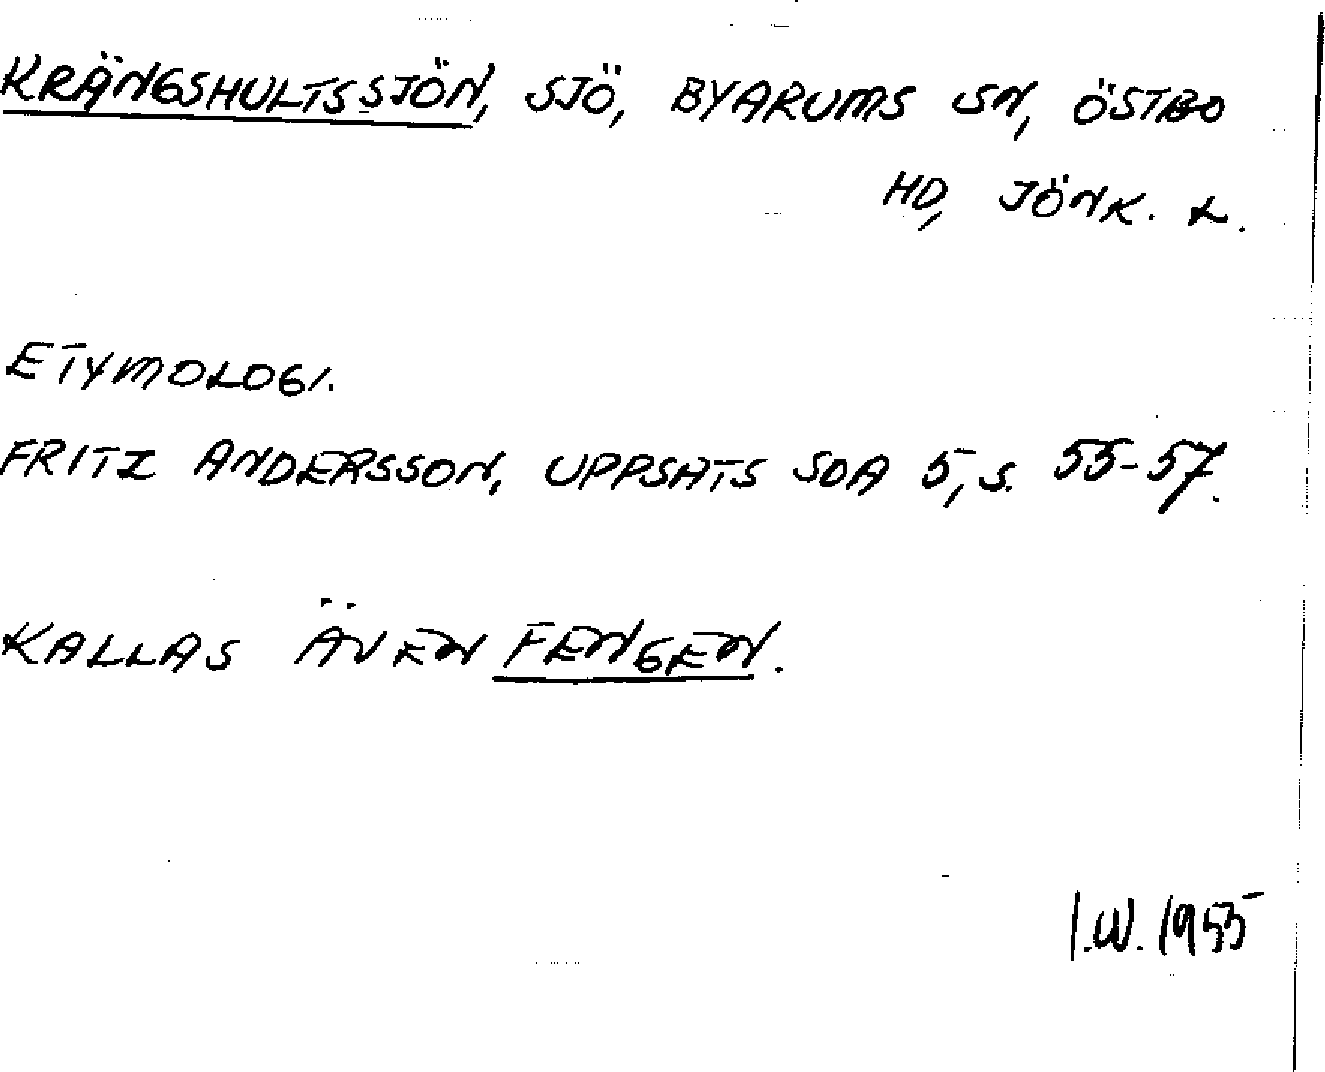 KRÄNGSHULTSSJÖN, SJÖ, BYARUMS SN, ÖSTBO
HD, JÖNK. L.
ETYMOLOGI.
FRITZ ANDERSSON, UPPSATS SOA 5, S. 55-57.
KALLAS ÄVEN FENGEN.
I.W. 1955